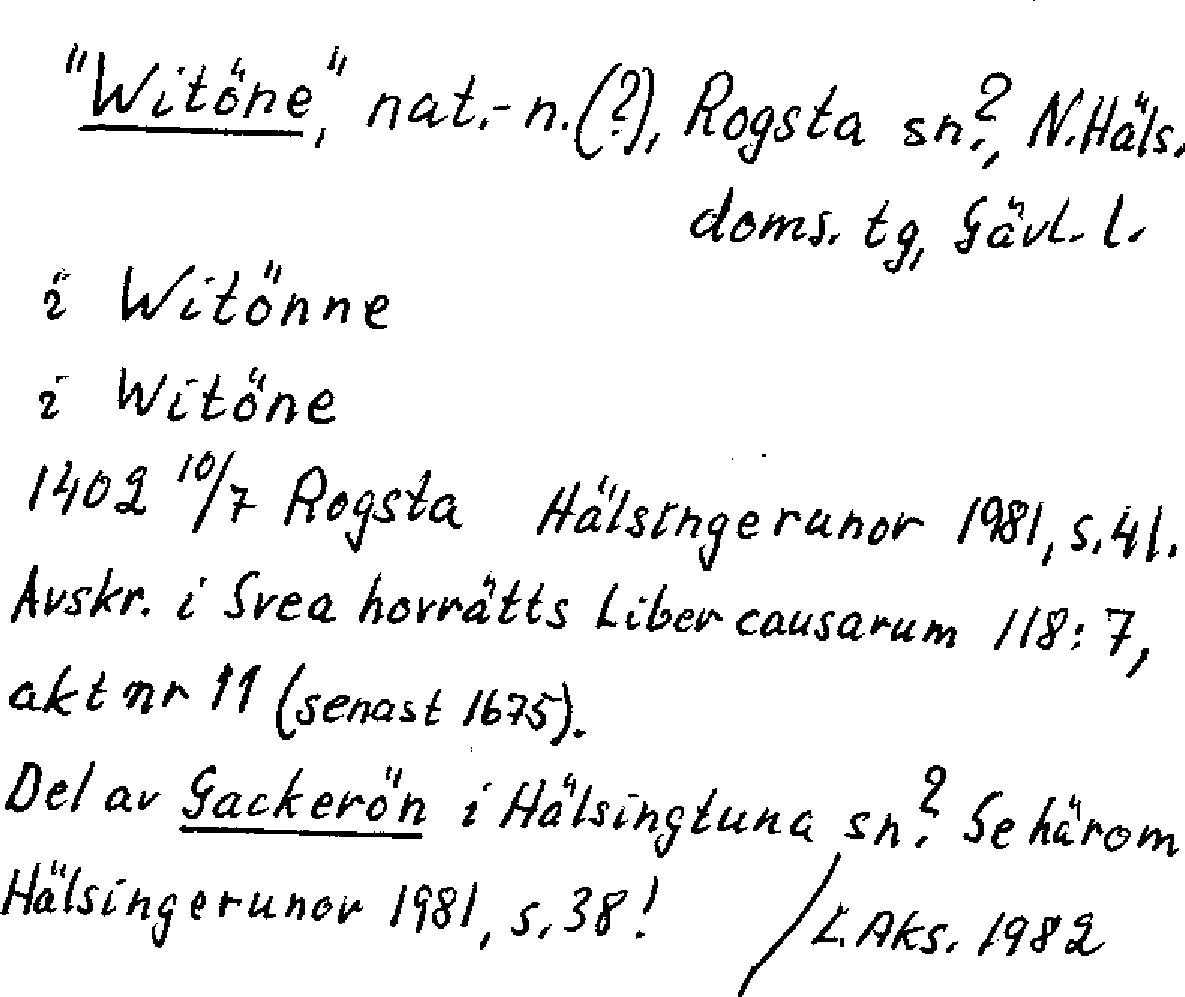 "Witöne", nat.-n.(?), Rogsta sn?, N.Häls.
doms. tg, Gävl. l.
i Witönne
i Witöne
1402 10/7 Rogsta Hälsingerunor 1981, s.41.
Avskr. i Svea hovrätts Liber causarum 118:7,
akt nr 11 (senast 1675).
Del av Gackerön i Hälsingtuna sn? Se härom
Hälsingerunor 1981, s.38!
/L.Aks. 1982